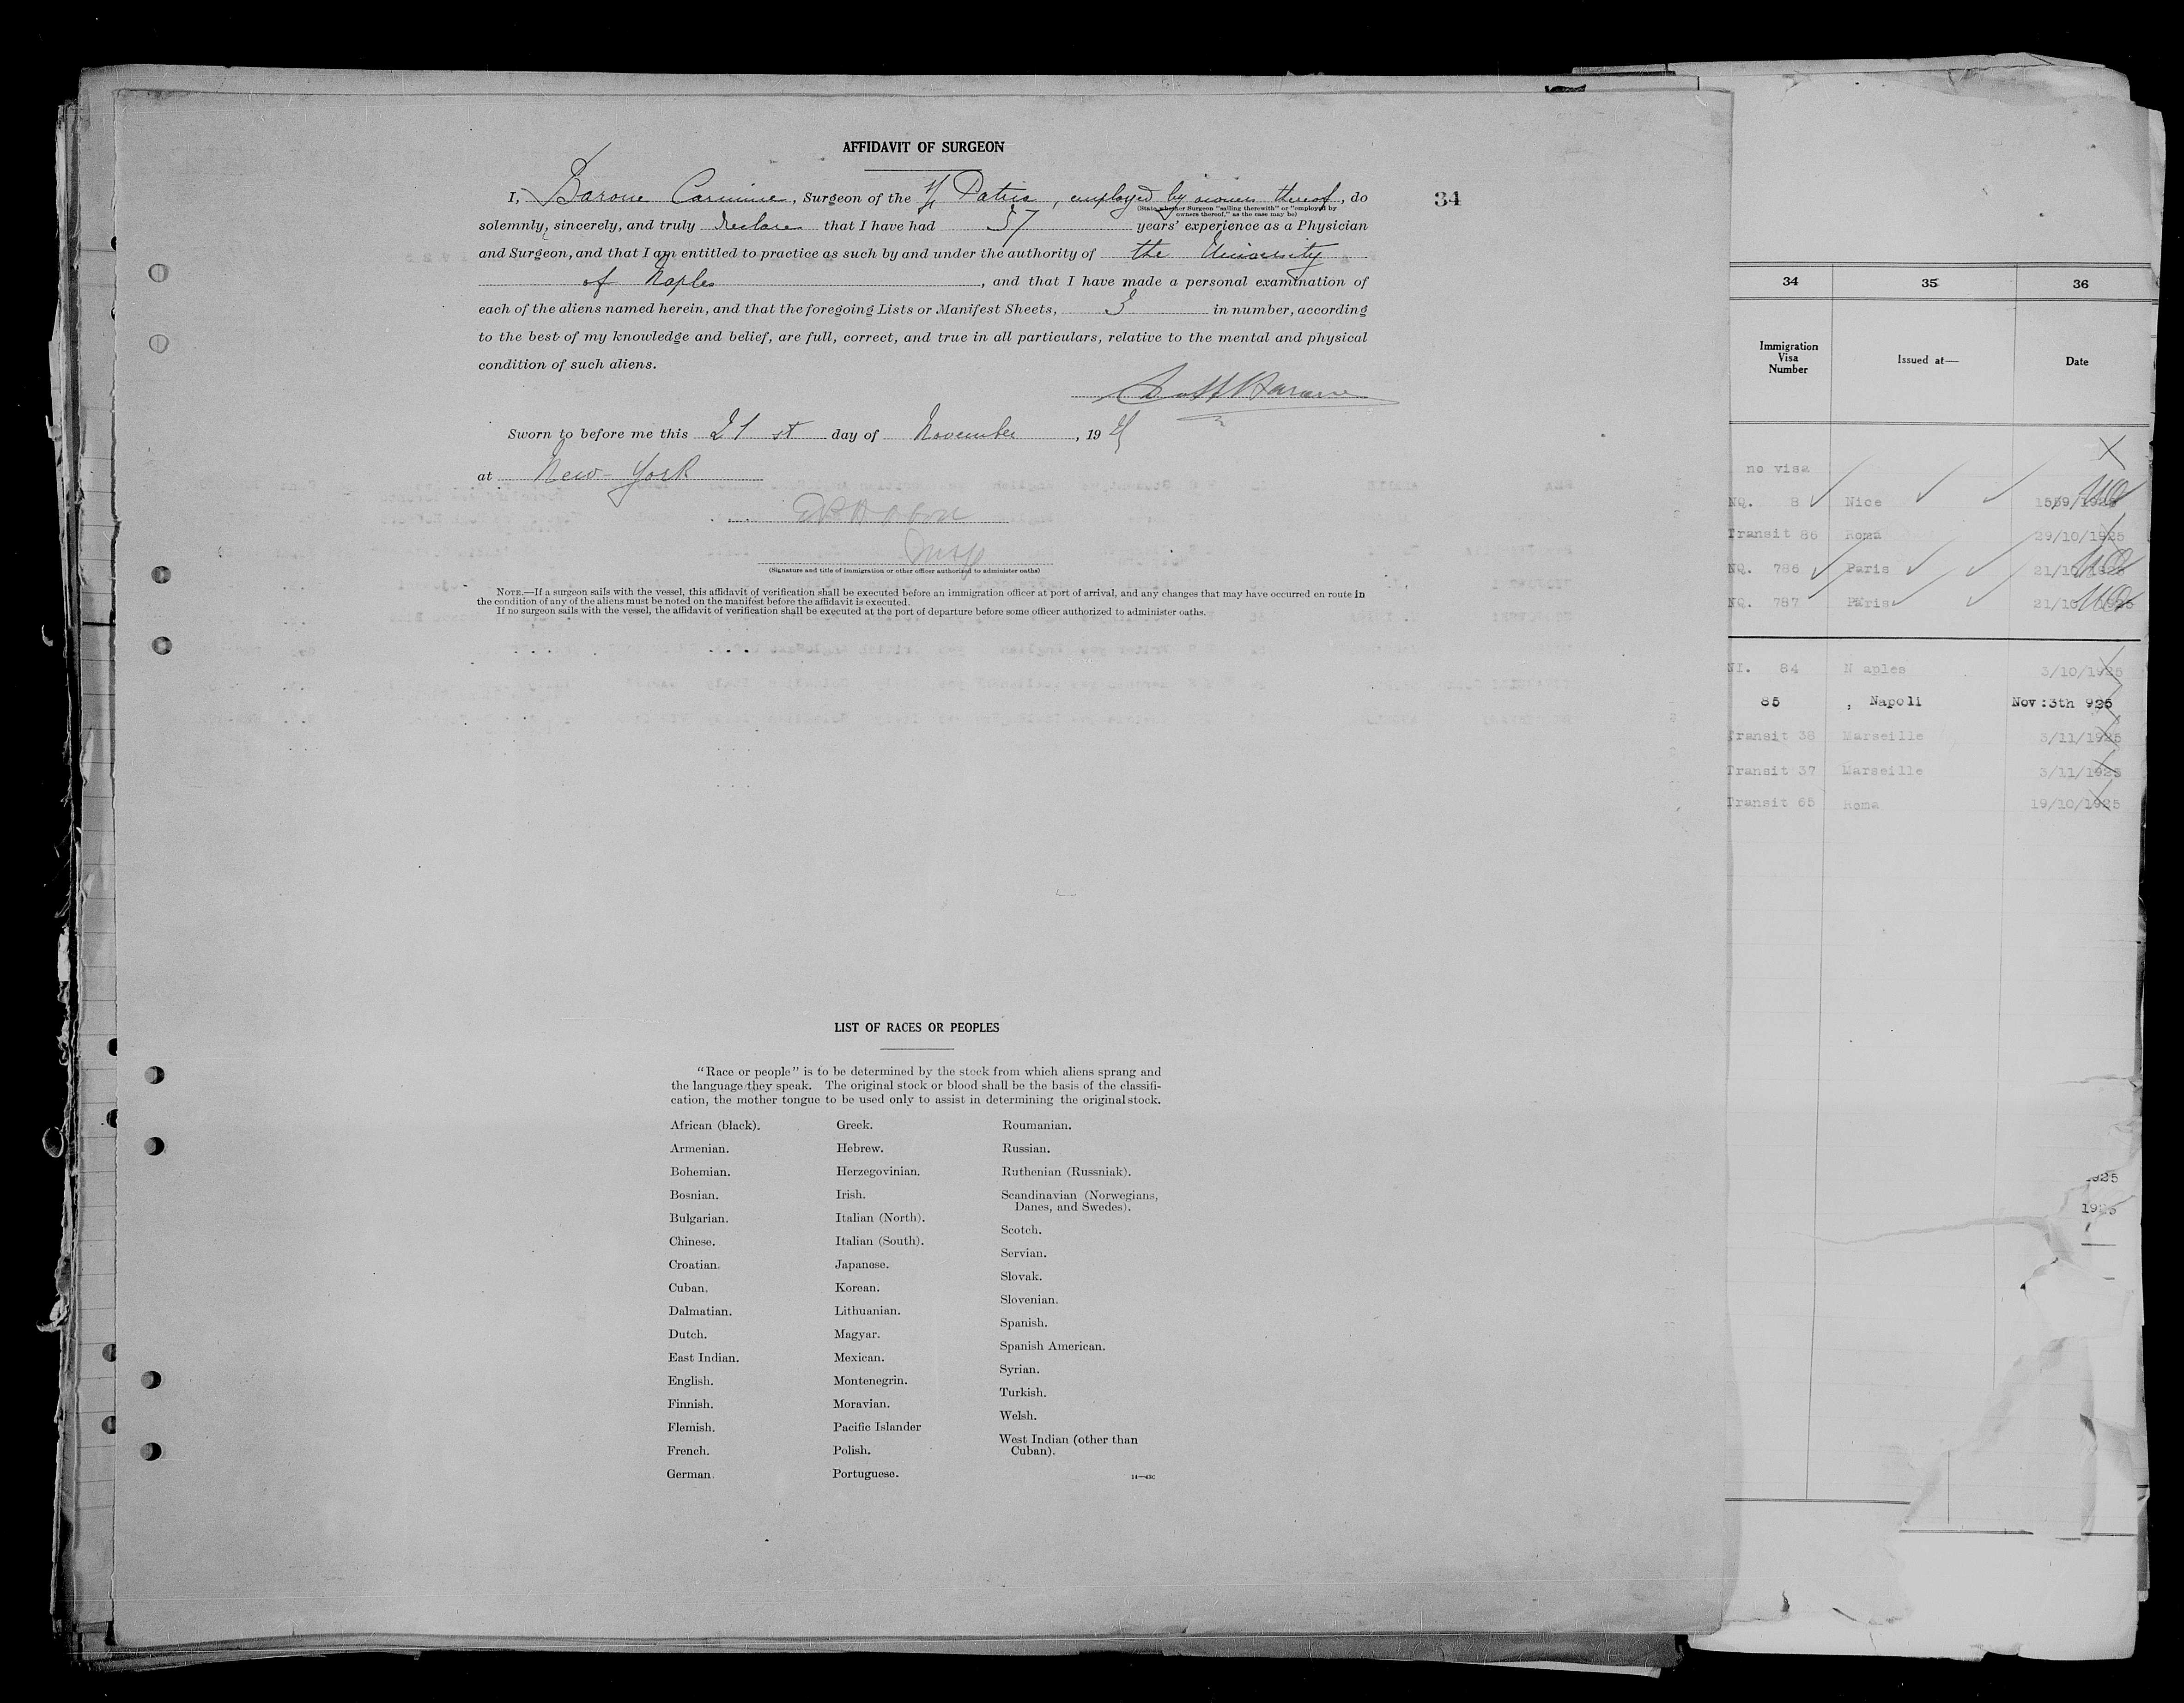 AFFIDAVIT OF SURGEON
34
I, Barone Carmine, Surgeon of the Patria, employed by owners thereof, do
(State whether Surgeon "sailing therewith" or "employed by
owners thereof," as the case may be)
solemnly, sincerely, and truly declare that I have had 37 years' experience as a Physician
and Surgeon, and that I am entitled to practice as such by and under the authority of the University
of Naples, and that I have made a personal examination of
each of the aliens named herein, and that the foregoing Lists or Manifest Sheets, 3 in number, according
to the best of my knowledge and belief, are full, correct, and true in all particulars, relative to the mental and physical
condition of such aliens.
Sworn to before me this 21 st day of November, 19
at New-York
Insp
(Signature and title of immigration or other officer authorized to administer oaths)
NOTE.—If a surgeon sails with the vessel, this affidavit of verification shall be executed before an immigration officer at port of arrival, and any changes that may have occurred on route in
the condition of any of the aliens must be noted on the manifest before the affidavit is executed.
If no surgeon sails with the vessel, the affidavit of verification shall be executed at the port of departure before some officer authorized to administer oaths.
LIST OF RACES OR PEOPLES
"Race or people" is to be determined by the stock from which aliens sprang and
the language they speak. The original stock or blood shall be the basis of the classifi-
cation, the mother tongue to be used only to assist in determining the original stock.
African (black).
Armenian.
Bohemian.
Bosnian.
Bulgarian.
Chinese.
Croatian.
Cuban.
Dalmatian.
Dutch.
East Indian.
English.
Finnish.
Flemish.
French.
German.
Greek.
Hebrew.
Herzegovinian.
Irish.
Italian (North).
Italian (South).
Japanese.
Korean.
Lithuanian.
Magyar.
Mexican.
Montenegrin.
Moravian.
Pacific Islander
Polish.
Portuguese.
Roumanian.
Russian.
Ruthenian (Russniak).
Scandinavian (Norwegians,
Danes, and Swedes).
Scotch.
Servian.
Slovak.
Slovenian.
Spanish.
Spanish American.
Syrian.
Turkish.
Welsh.
West Indian (other than
Cuban).
34 35 36
Immigration
Visa
Number
Issued at—
Date
no visa
NQ. 8 Nice
Transit 86 Roma 29/10/1925
NQ. 786 Paris 21/10/1925
NQ. 787 Paris 21/10/1925
NI. 84 N aples 3/10/1925
85 , Napoli Nov:3th 925
Transit 38 Marseille 3/11/1925
Transit 37 Marseille 3/11/1925
Transit 65 Roma 19/10/1925
1925
1925